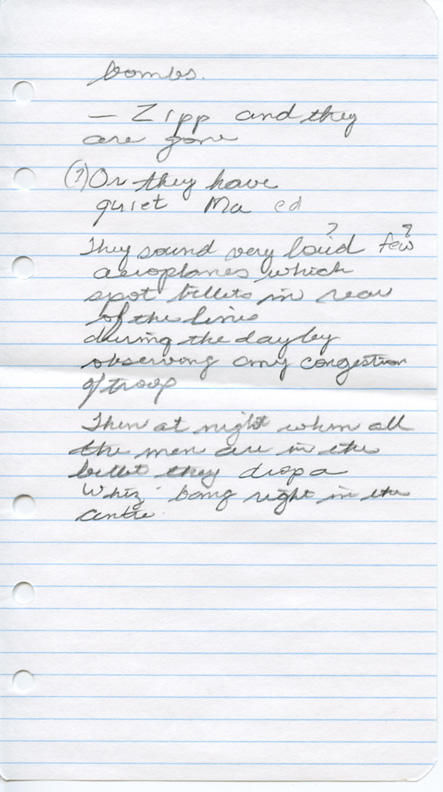 bombs.
— Zipp and they
are gone
(?) Or they have
quiet Ma ed
? ?
They sound very loud few
aeroplanes which
spot billets in rear
of the lines
during the day by
observing any congestion
of troop
Then at night when all
the men are in the
billet they drop a
Whiz-bang right in the
centre.